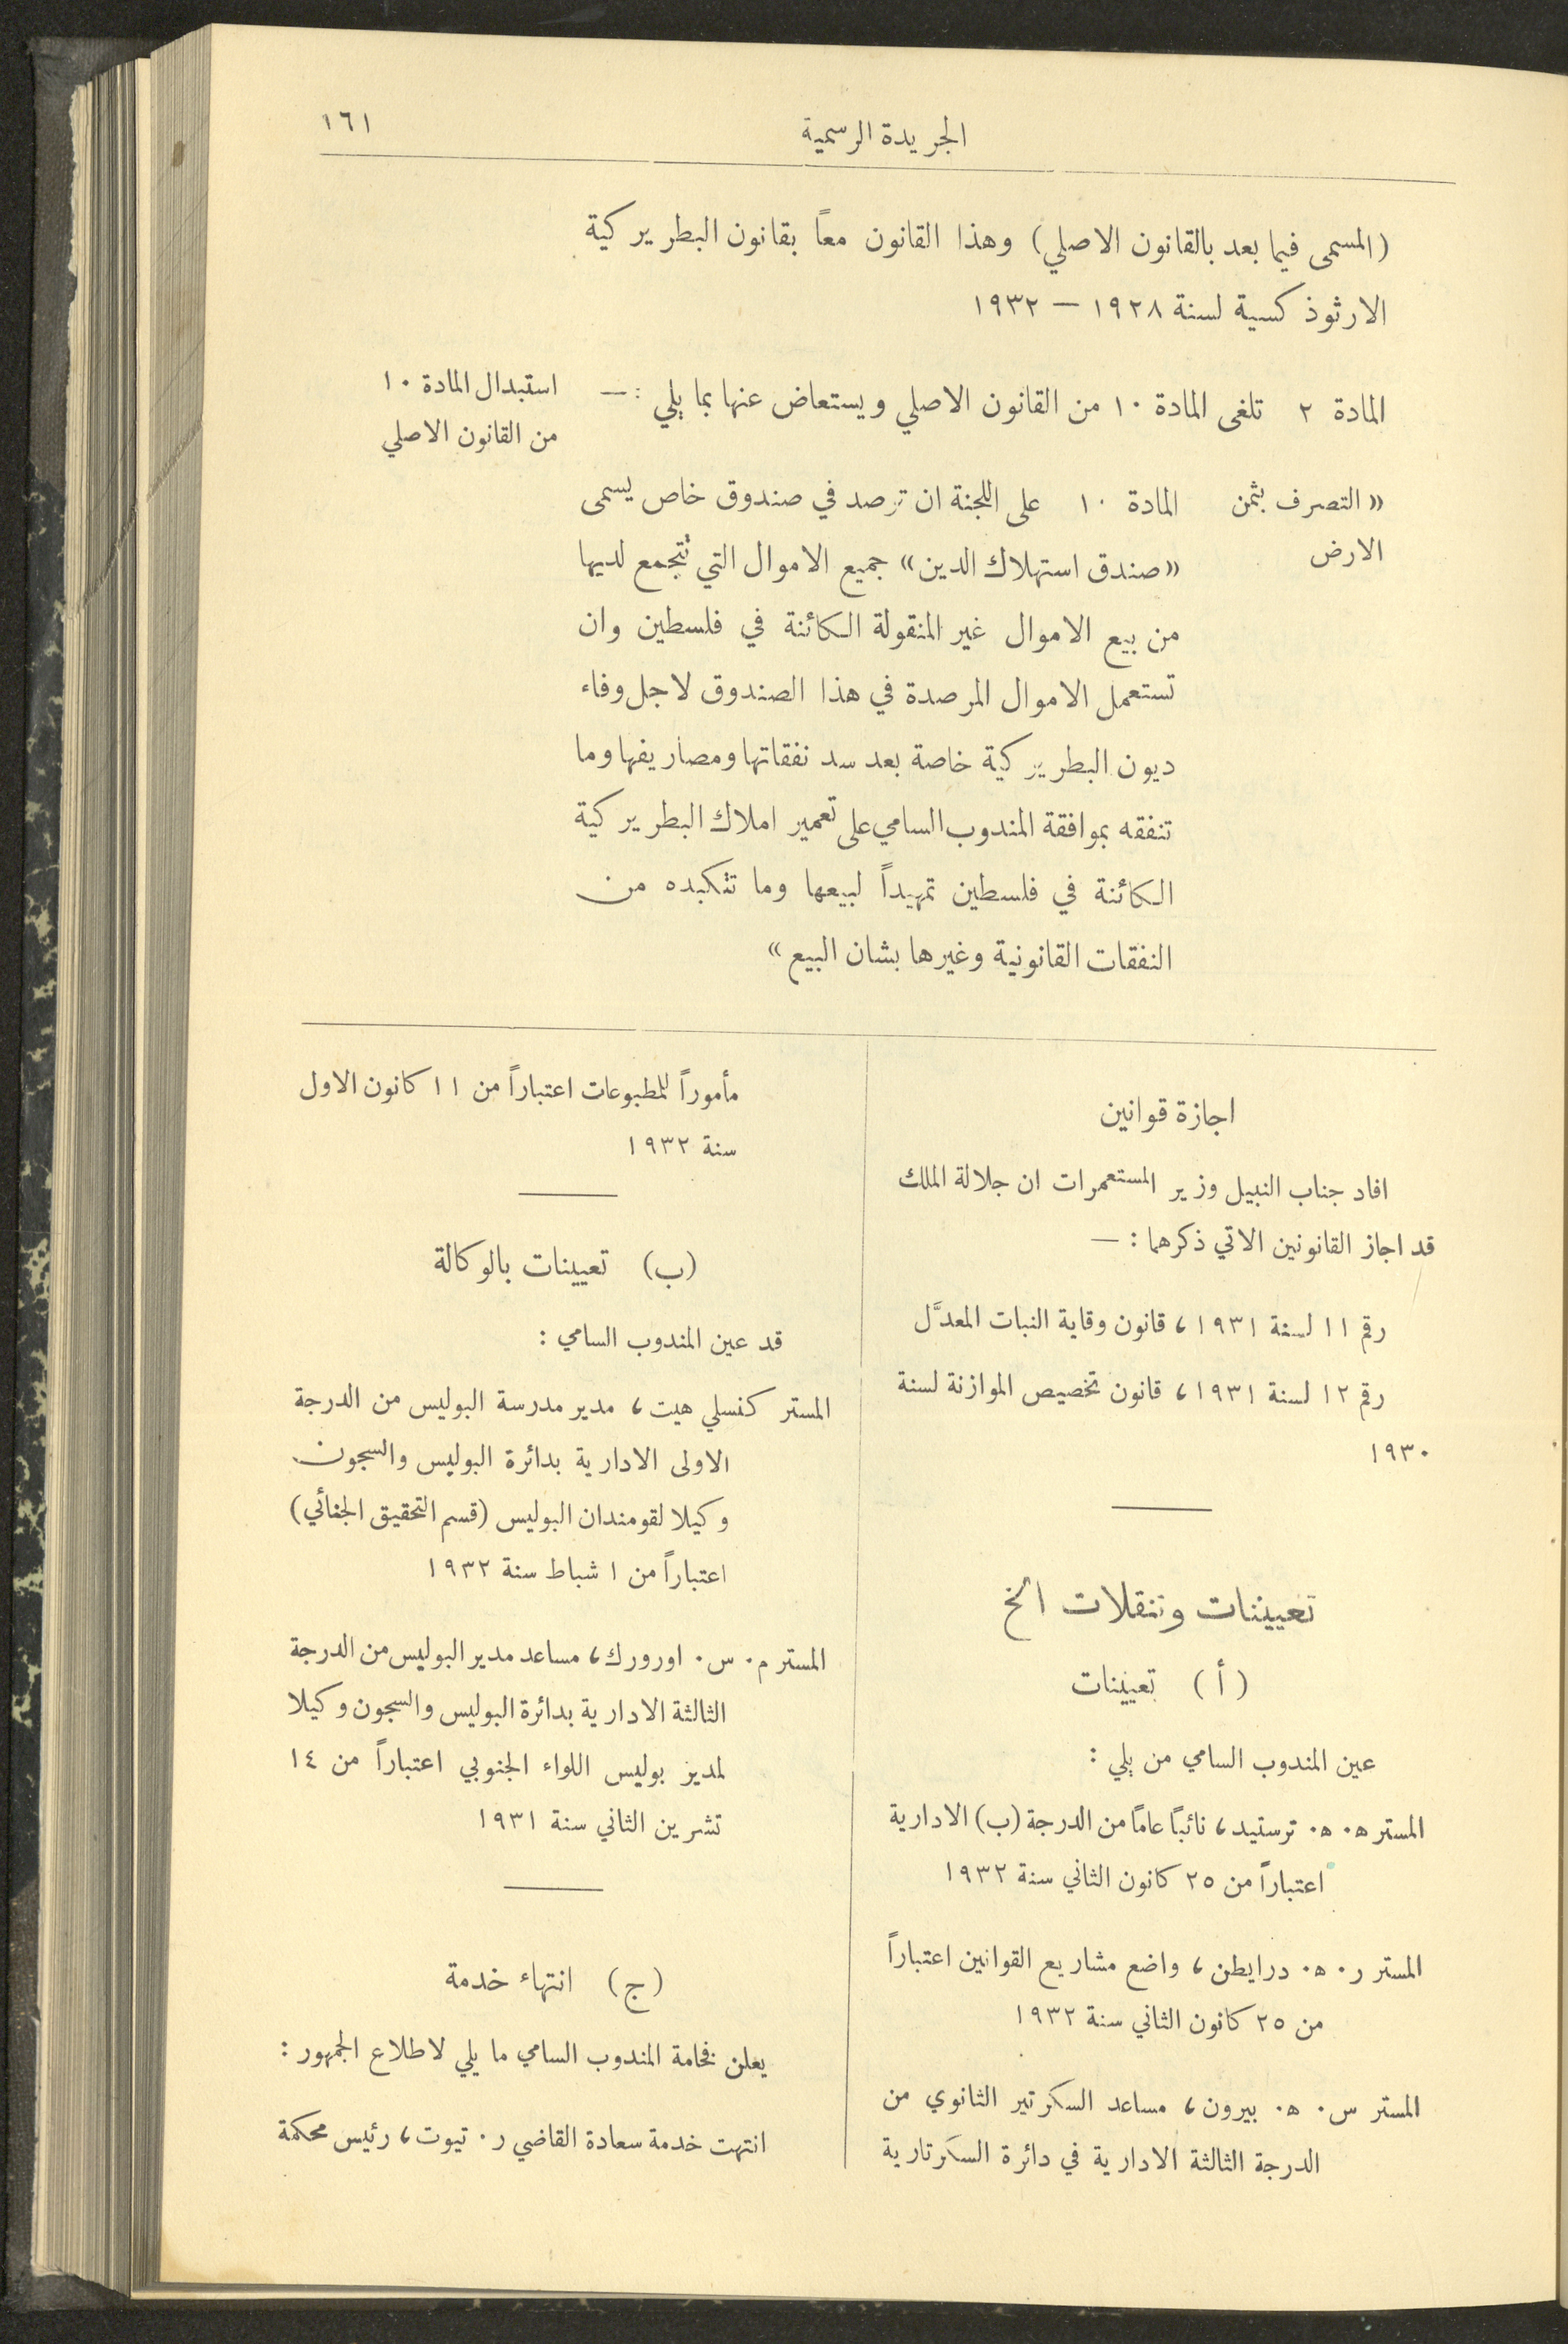 الجريدة الرسمية
١٦١
(المسمى فيما بعد بالقانون الاصلي) وهذا القانون معاً بقانون البطريركية
الارثوذكسية لسنة ١٩٢٨ — ١٩٣٢
المادة ٢ تلغى المادة ١٠ من القانون الاصلي ويستعاض عنها بما يلي : —
استبدال المادة ١٠
من القانون الاصلي
« التصرف بثمن
الارض
المادة ١٠ على اللجنة ان ترصد في صندوق خاص يسمى
«صندق استهلاك الدين» جميع الاموال التي تتجمع لديها
من بيع الاموال غير المنقولة الكائنة في فلسطين وان
تستعمل الاموال المرصدة في هذا الصندوق لاجل وفاء
ديون البطريركية خاصة بعد سد نفقاتها ومصاريفها وما
تنفقه بموافقة المندوب السامي على تعمير املاك البطريركية
الكائنة في فلسطين تمهيداً لبيعها وما تتكبده من
النفقات القانونية وغيرها بشان البيع»
اجازة قوانين
افاد جناب النبيل وزير المستعمرات ان جلالة الملك
قد اجاز القانونين الاتي ذكرهما : —
رقم ١١ لسنة ١٩٣١، قانون وقاية النبات المعدَّل
رقم ١٢ لسنة ١٩٣١، قانون تخصيص الموازنة لسنة
١٩٣٠
تعيينات وتنقلات الخ
(أ) تعيينات
عين المندوب السامي من يلي :
المستر ه. ه. ترستيد، نائباً عاماً من الدرجة (ب) الادارية
اعتباراً من ٢٥ كانون الثاني سنة ١٩٣٢
المستر ر. ه. درايطن، واضع مشاريع القوانين اعتباراً
من ٢٥ كانون الثاني سنة ١٩٣٢
المستر س. ه. بيرون، مساعد السكرتير الثانوي من
الدرجة الثالثة الادارية في دائرة السكرتارية
مأموراً للمطبوعات اعتباراً من ١١ كانون الاول
سنة ١٩٣٢
(ب) تعيينات بالوكالة
قد عين المندوب السامي :
المستر كنسلي هيت، مدير مدرسة البوليس من الدرجة
الاولى الادارية بدائرة البوليس والسجون
وكيلا لقومندان البوليس (قسم التحقيق الجنائي)
اعتباراً من ١ شباط سنة ١٩٣٢
المستر م. س. اورورك، مساعد مدير البوليس من الدرجة
الثالثة الادارية بدائرة البوليس والسجون وكيلا
لمدير بوليس اللواء الجنوبي اعتباراً من ١٤
تشرين الثاني سنة ١٩٣١
(ج) انتهاء خدمة
يعلن فخامة المندوب السامي ما يلي لاطلاع الجمهور :
انتهت خدمة سعادة القاضي ر. تيوت، رئيس محكمة